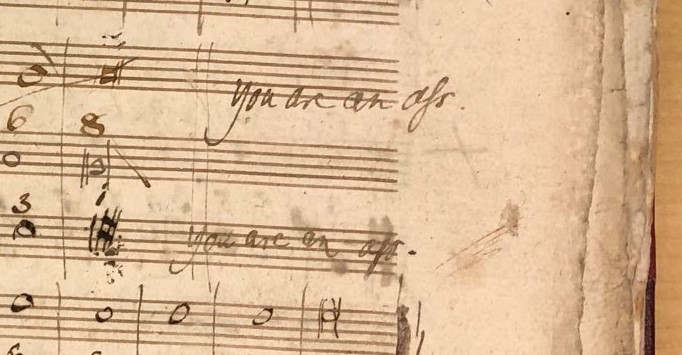 you are an ass.
6 8
3
you are an ass.